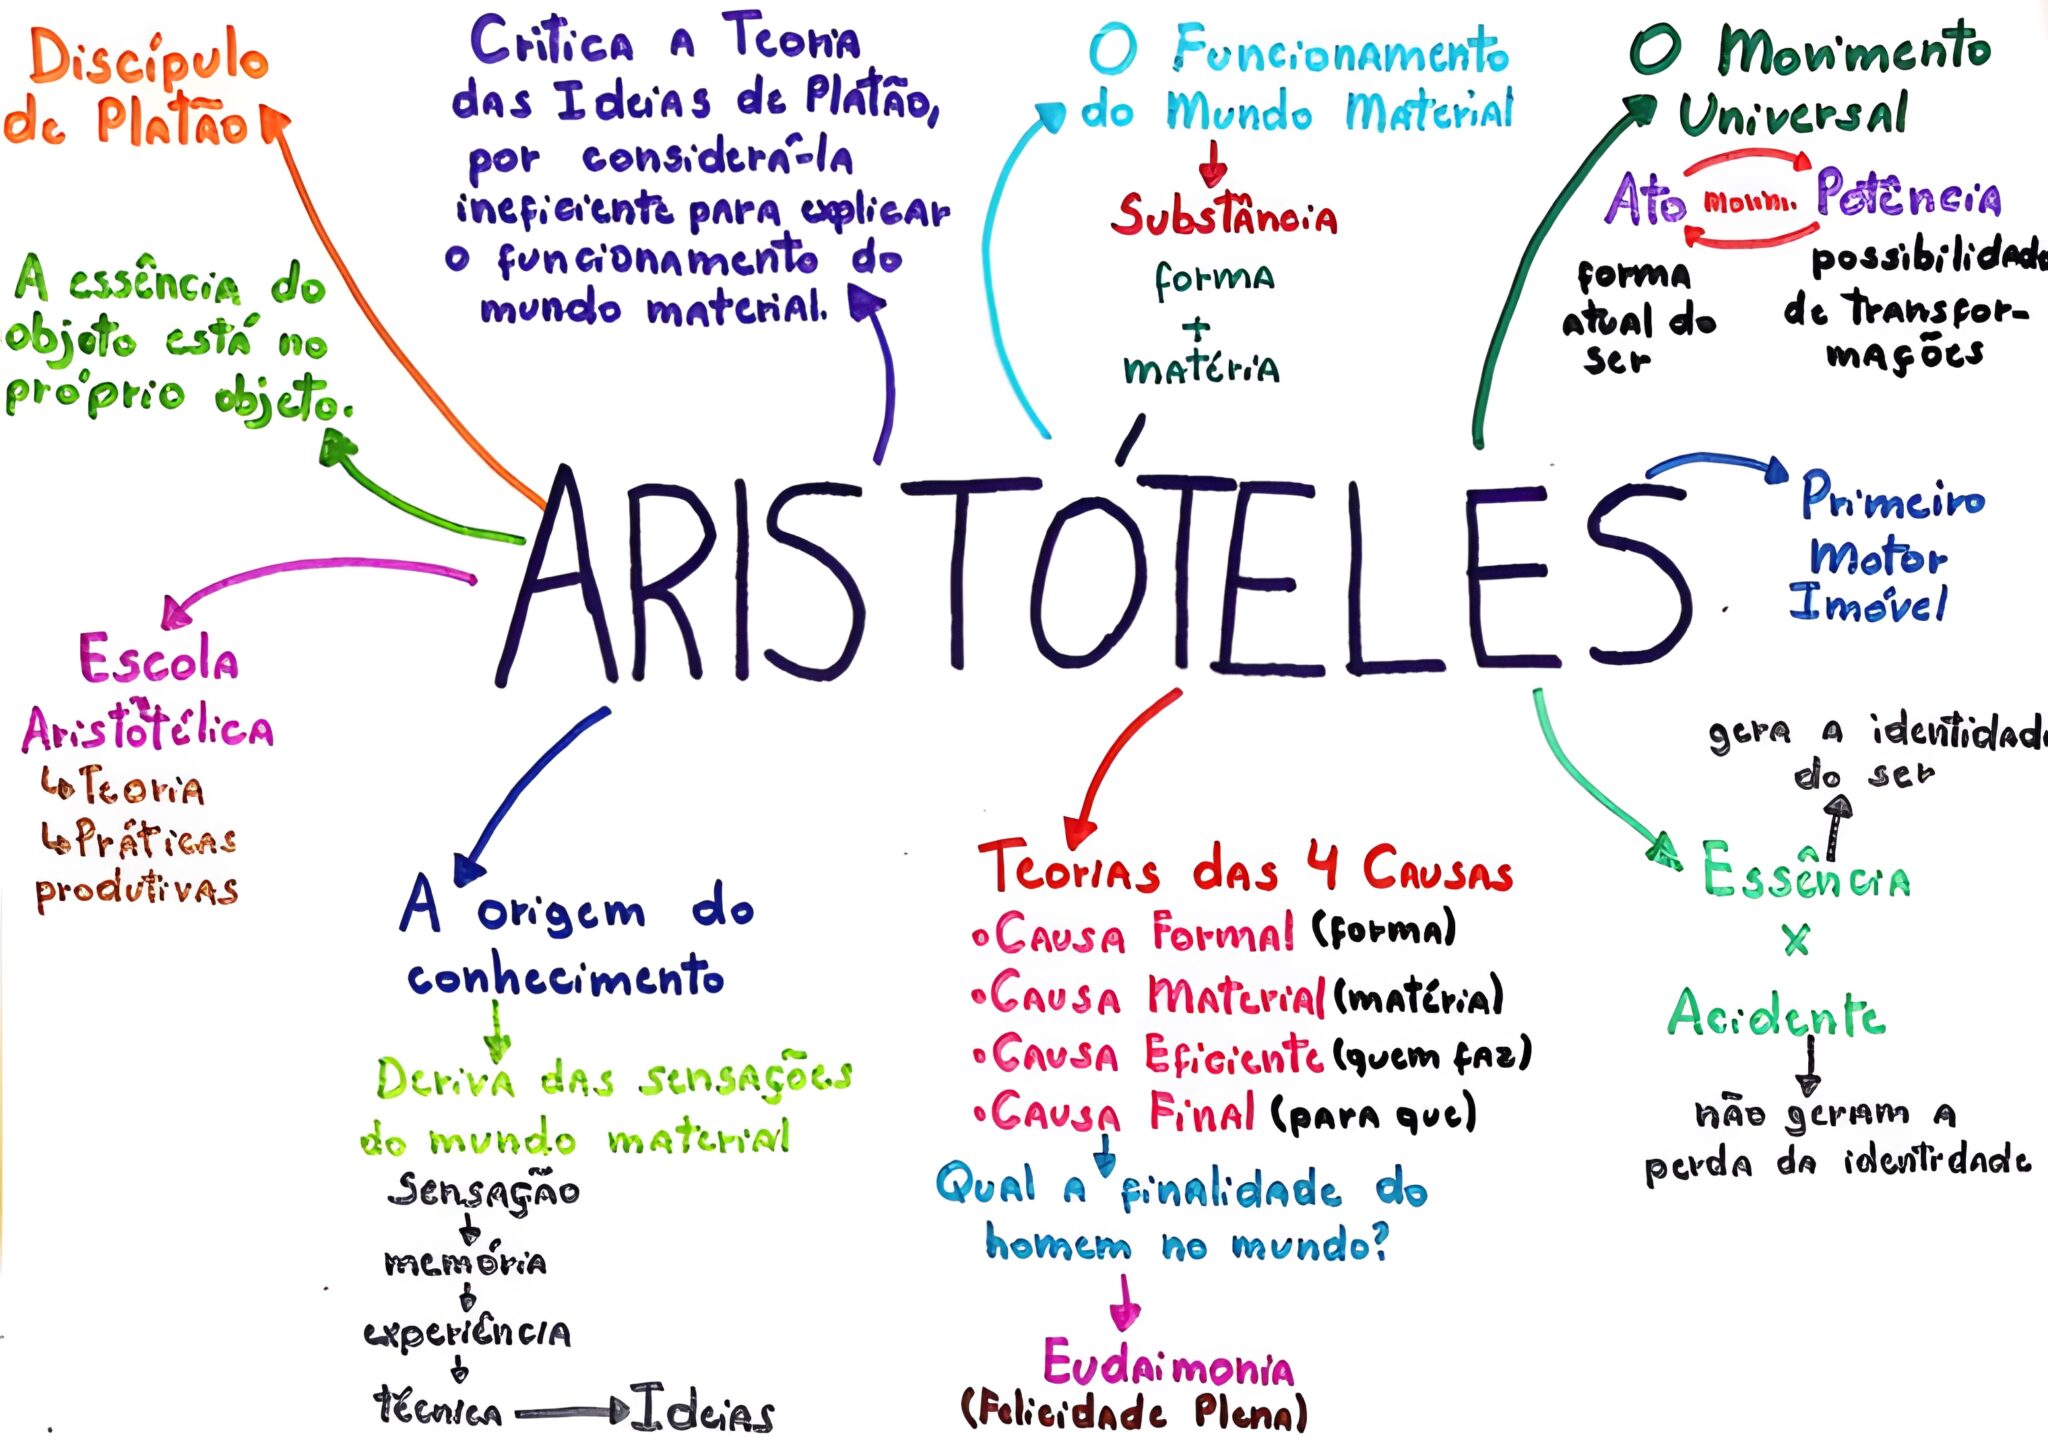 Discípulo
de Platão
Critica a Teoria
das Ideias de Platão,
por considerá-la
ineficiente para explicar
o funcionamento do
mundo material.
O Funcionamento
do Mundo Material
Substância
forma
+
matéria
O Movimento
Universal
Ato Movim. Potência
forma
atual do
ser
possibilidade
de transfor-
mações
A essência do
objeto está no
próprio objeto.
ARISTÓTELES
Primeiro
Motor
Imóvel
Escola
Aristotélica
↳Teoria
↳Práticas
produtivas
A origem do
conhecimento
Deriva das sensações
do mundo material
sensação
memória
experiência
técnica Ideias
Teorias das 4 Causas
•Causa Formal (forma)
•Causa Material (matéria)
•Causa Eficiente (quem faz)
•Causa Final (para que)
Qual a finalidade do
homem no mundo?
Eudaimonia
(Felicidade Plena)
gera a identidade
do ser
Essência
x
Acidente
não geram a
perda da identidade